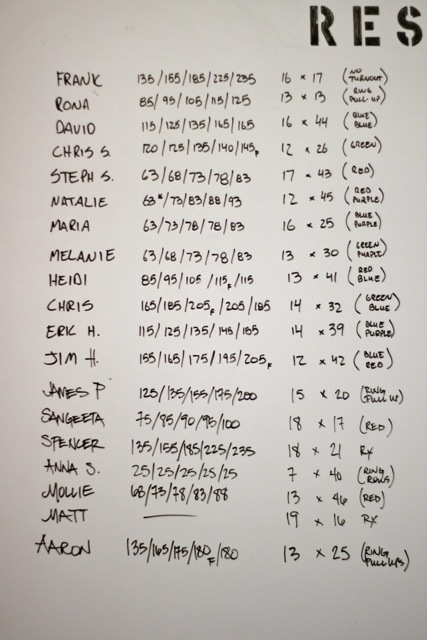 RES
FRANK 135/155/185/225/235 16 x 17 (NO TURNOUT)
RONA 85/95/105/115/125 13 x 13 (RING PULL-UP)
DAVID 115/125/135/165/165 16 x 44 (BLUE BLUE)
CHRIS S. 120/125/135/140/145F 12 x 26 (GREEN)
STEPH S. 63/68/73/78/83 17 x 43 (RED)
NATALIE 68*/73/83/88/93 12 x 45 (RED PURPLE)
MARIA 63/73/78/78/83 16 x 25 (BLUE PURPLE)
MELANIE 63/68/73/78/83 13 x 30 (GREEN PURPLE)
HEIDI 85/95/105/115F/115 13 x 41 (RED BLUE)
CHRIS 165/185/205F/205/185 14 x 32 (GREEN BLUE)
ERIC H. 115/125/135/145/185 14 x 39 (BLUE PURPLE)
JIM H. 155/165/175/195/205F 12 x 42 (BLUE RED)
JAMES P 125/135/155/175/200 15 x 20 (RING PULL UP)
SANGEETA 75/85/90/95/100 18 x 17 (RED)
SPENCER 135/155/185/225/235 18 x 21 RX
ANNA S. 25/25/25/25/25 7 x 40 (RING ROWS)
MOLLIE 68/73/78/83/88 13 x 46 (RED)
MATT 19 x 16 RX
AARON 135/165/175/180F/180 13 x 25 (RING PULL UPS)